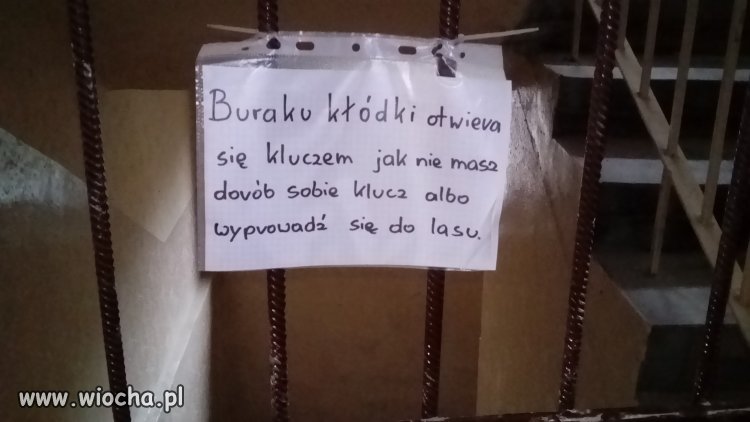 Buraku kłódki otwiera
się kluczem jak nie masz
dorób sobie klucz albo
wyprowadź się do lasu.
www.wiocha.pl